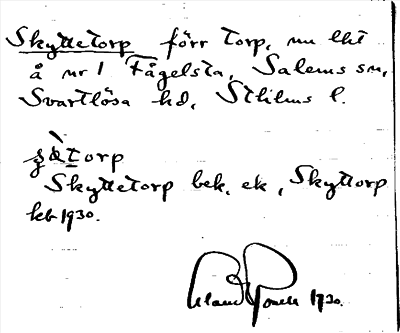 Skyttetorp förr torp, nu lht
å nr 1 Fågelsta, Salems sn,
Svartlösa hd, Sthlms l.
torp
Skyttetorp bek. ek, Skyttorp
kb 1930.
1930.